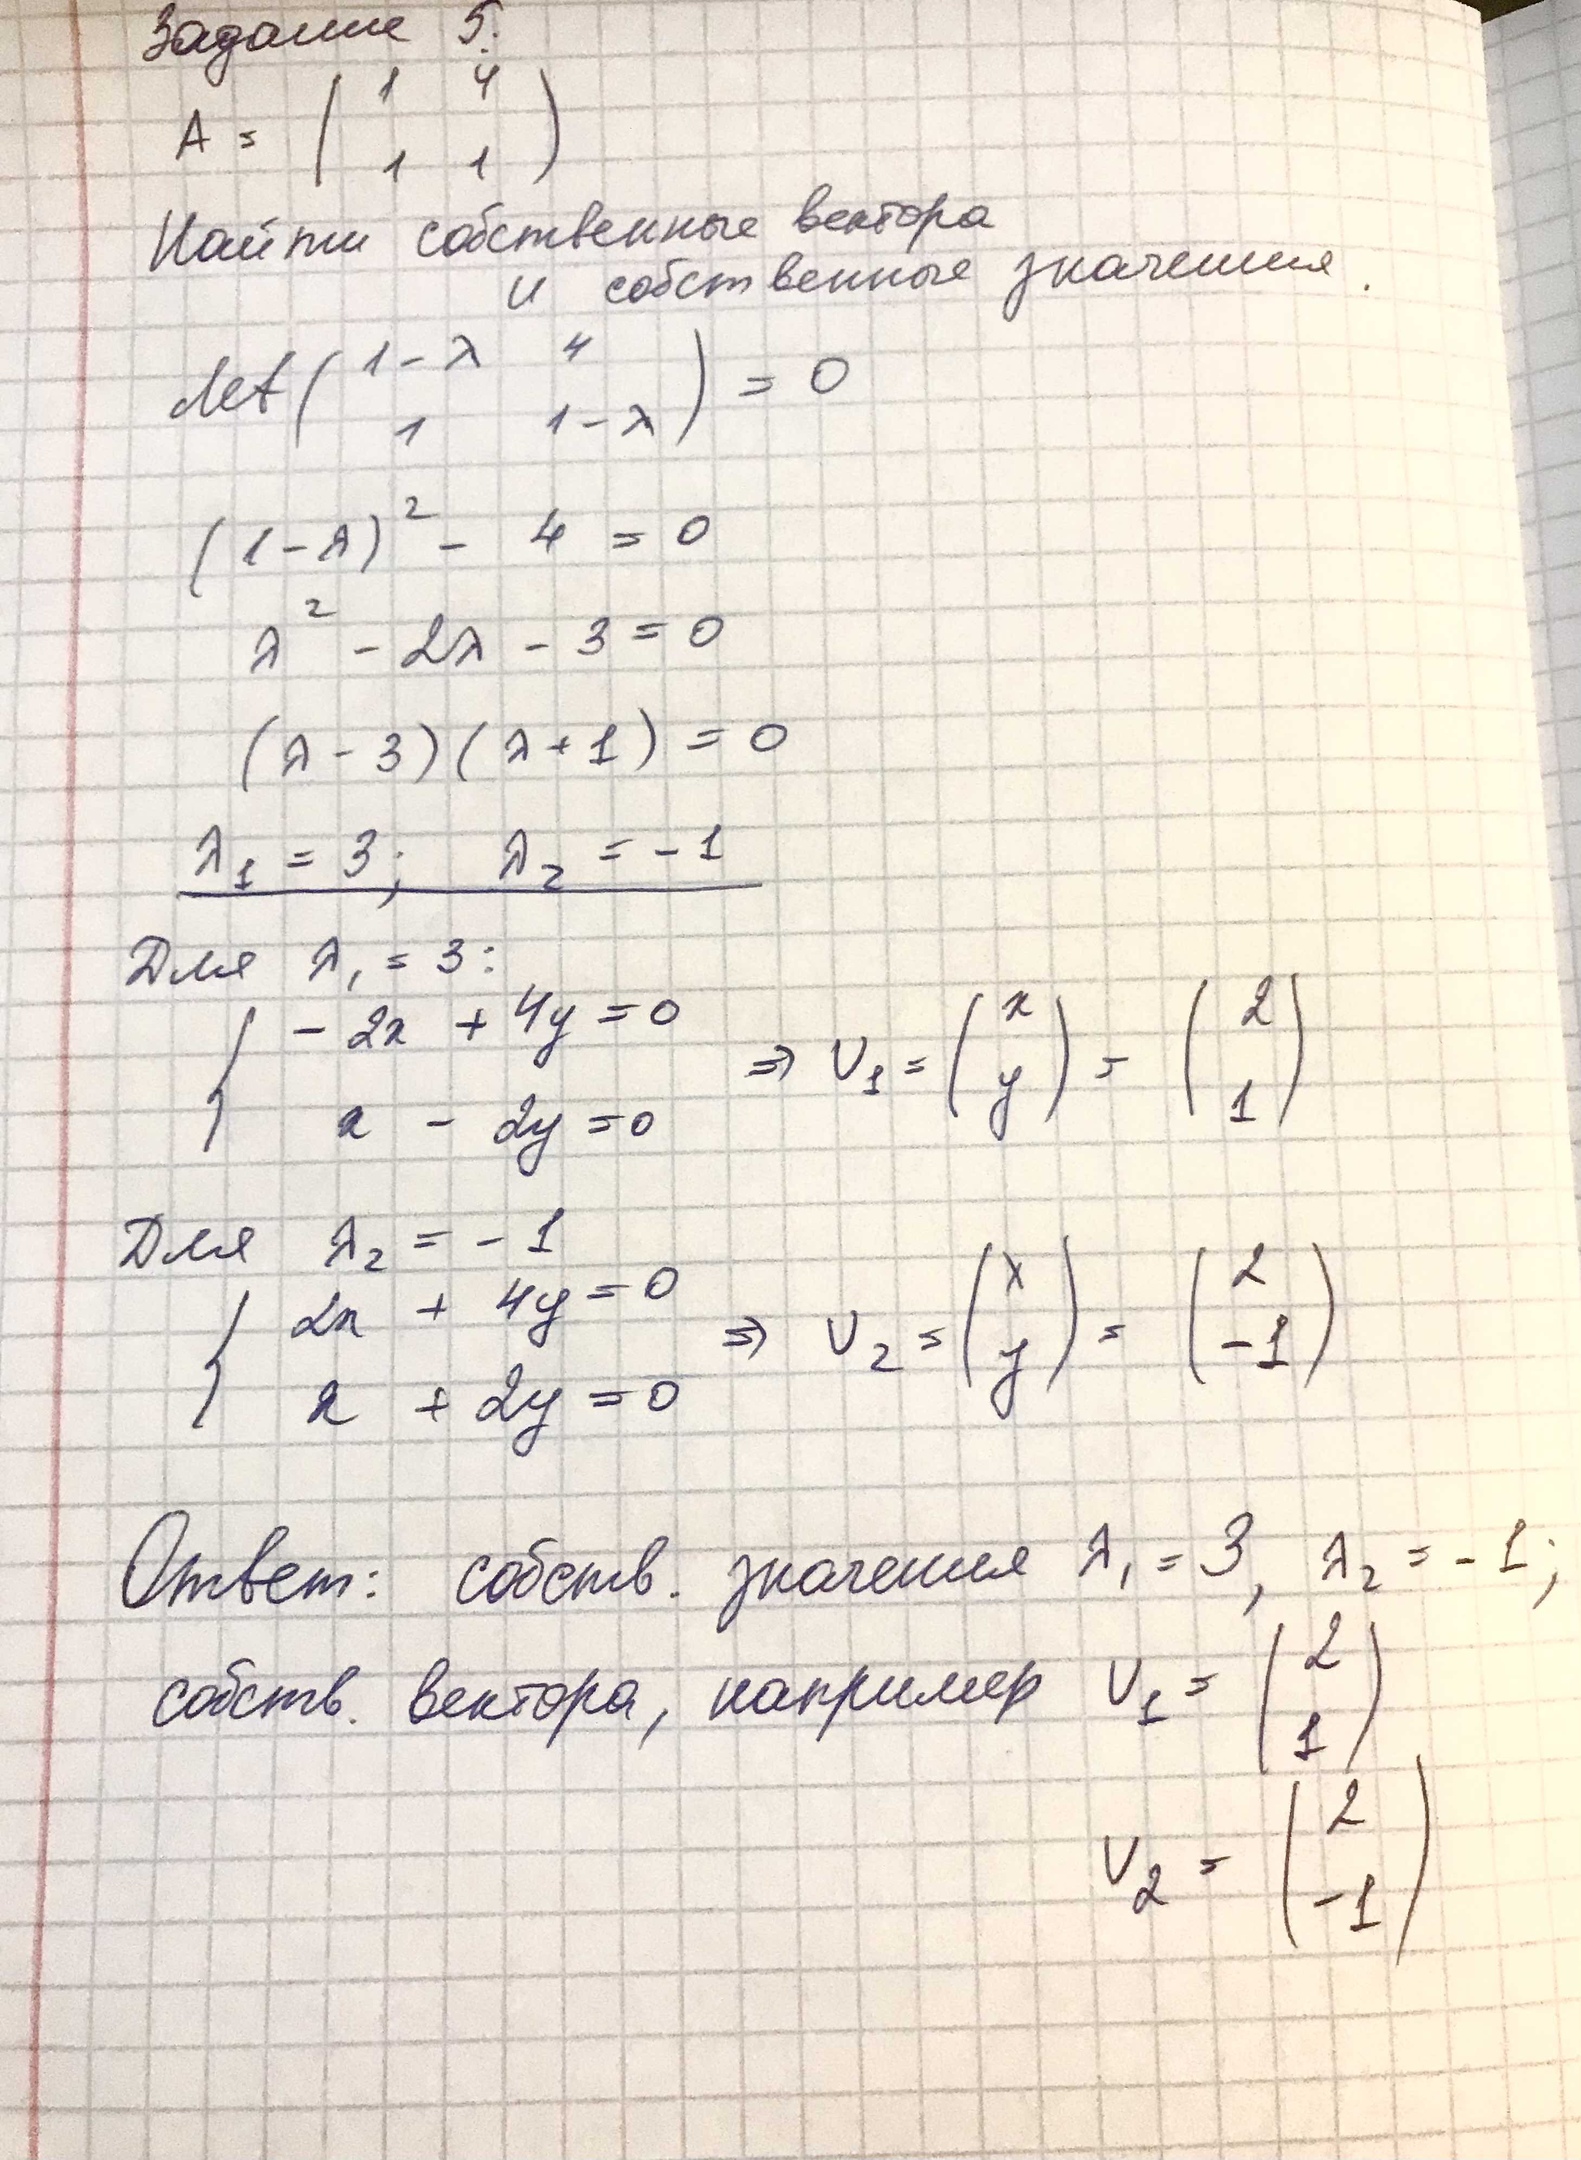 Задание 5.
A = ( 1 4
1 1 )
Найти собственные вектора
и собственные значения.
det ( 1-λ 4
1 1-λ ) = 0
(1-λ)² - 4 = 0
λ² - 2λ - 3 = 0
(λ-3)(λ+1) = 0
λ₁ = 3; λ₂ = -1
Для λ₁ = 3:
{ -2x + 4y = 0
x - 2y = 0 ⇒ V₁ = ( x y ) = ( 2 1 )
Для λ₂ = -1
{ 2x + 4y = 0
x + 2y = 0 ⇒ V₂ = ( x y ) = ( 2 -1 )
Ответ: собств. значения λ₁ = 3, λ₂ = -1;
собств. вектора, например V₁ = ( 2 1 )
V₂ = ( 2 -1 )